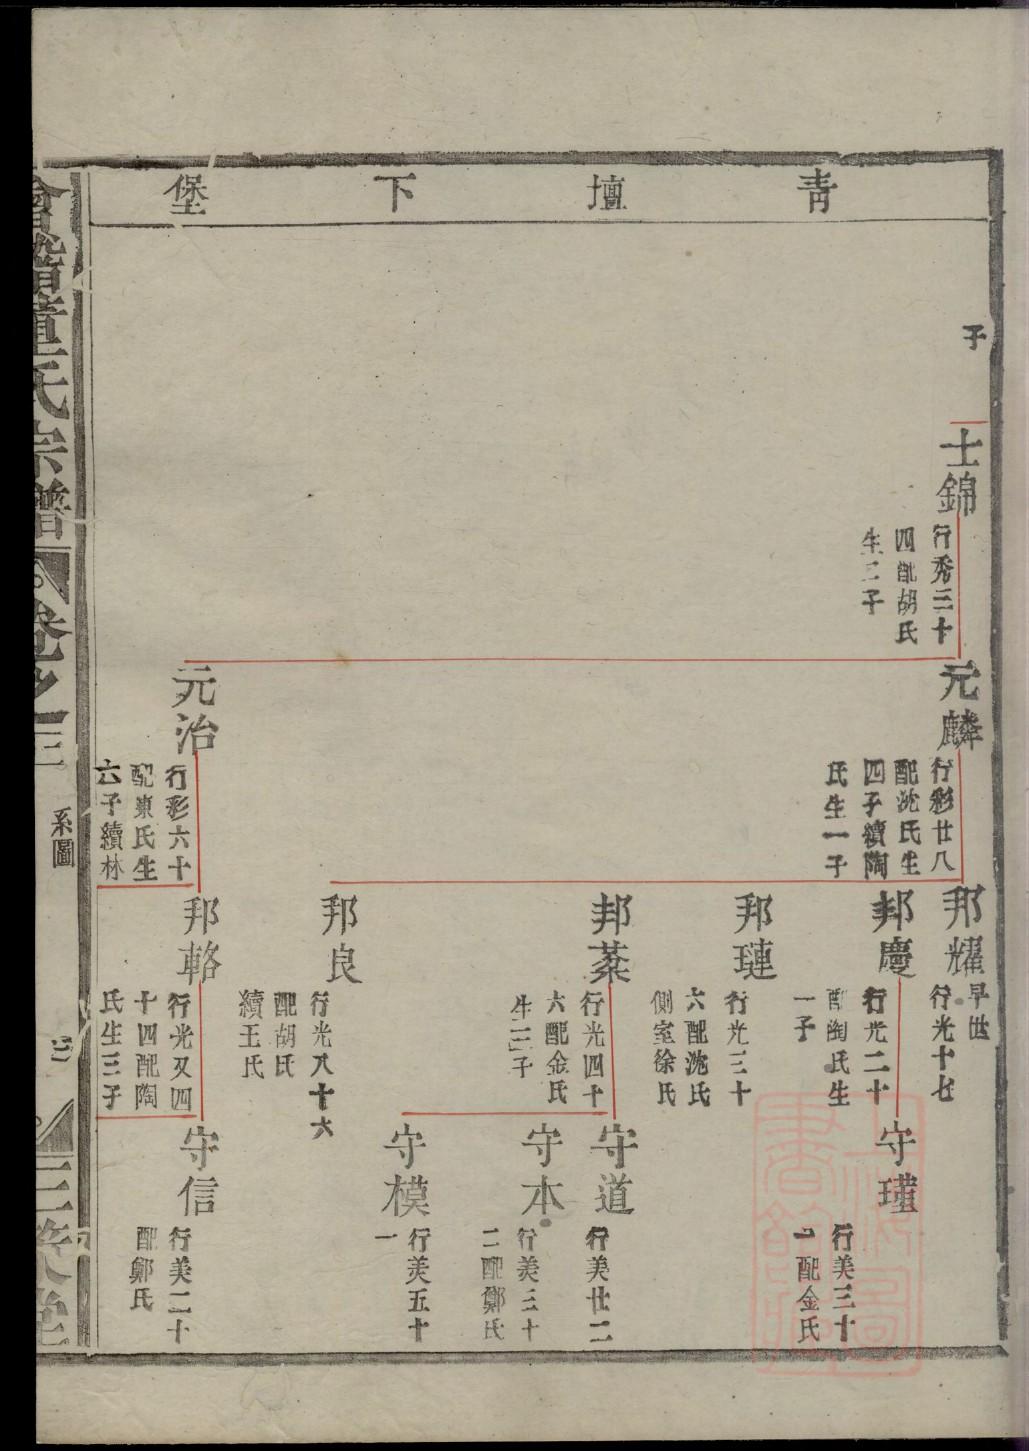 青壇下堡
子
士錦
行秀三十
四配胡氏
生二子
元麟
行彩廿八
配沈氏生
四子續陶
氏生一子
元治
行彩六十
配東氏生
六子續林
邦耀
早世
行光十七
邦慶
行光二十
配陶氏生
一子
邦璉
行光三十
六配沈氏
側室徐氏
邦葇
行光四十
六配金氏
生三子
邦良
行光八十六
配胡氏
續王氏
邦輅
行光又四
十四配陶
氏生三子
守瑾
行美三十
一配金氏
守道
行美廿二
守本
行美三十
二配鄭氏
守模
行美五十
一
守信
行美二十
配鄭氏
會稽董氏宗譜
卷之三
系圖
三登堂